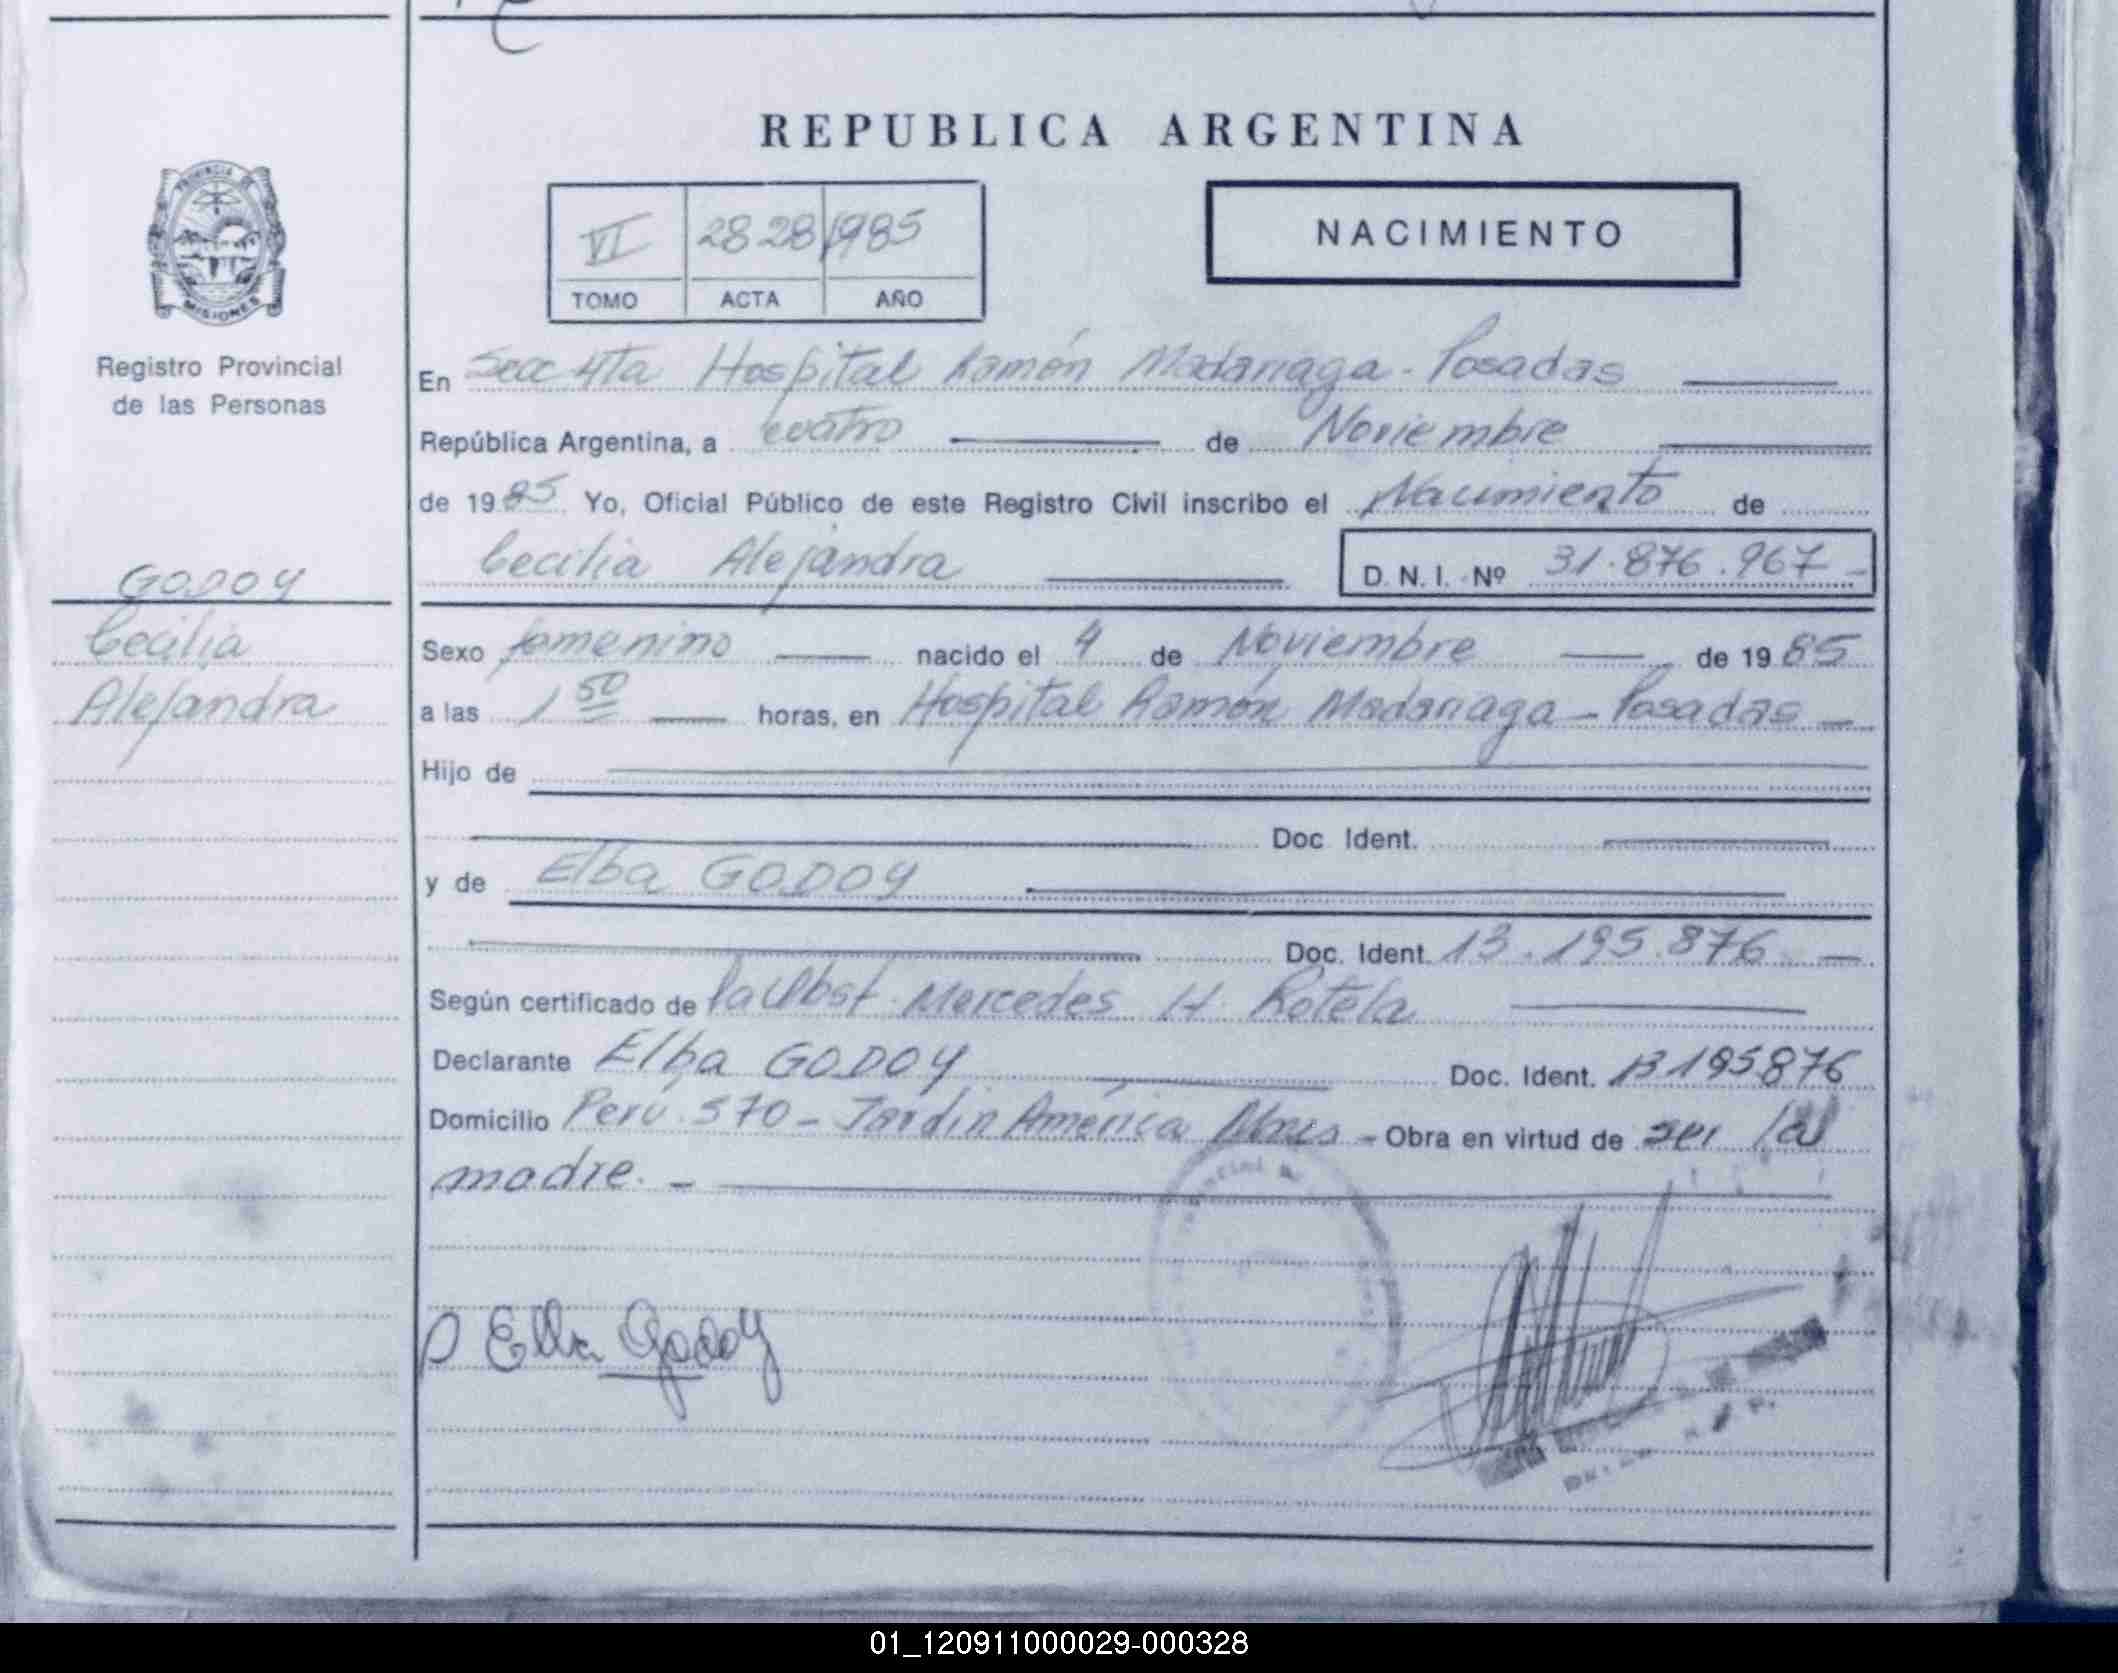 REPUBLICA ARGENTINA
VI 2828 1985
TOMO ACTA AÑO
NACIMIENTO
PROVINCIA DE
MISIONES
Registro Provincial
de las Personas
GODOY
Cecilia
Alejandra
En Secc 4ta Hospital Ramón Madariaga - Posadas
República Argentina, a cuatro de Noviembre
de 1985 Yo, Oficial Público de este Registro Civil inscribo el Nacimiento de
Cecilia Alejandra D.N.I. Nº 31.876.967-
Sexo femenino nacido el 4 de Noviembre de 1985
a las 1 50 horas, en Hospital Ramón Madariaga - Posadas -
Hijo de
Doc Ident.
y de Elba GODOY
Doc. Ident. 13.195.876 -
Según certificado de la Obst. Mercedes H Rotela
Declarante Elba GODOY Doc. Ident. 13195876
Domicilio Perú 570 - Jardín América Mnes - Obra en virtud de ser la
madre. -
Elba Godoy
01_120911000029-000328